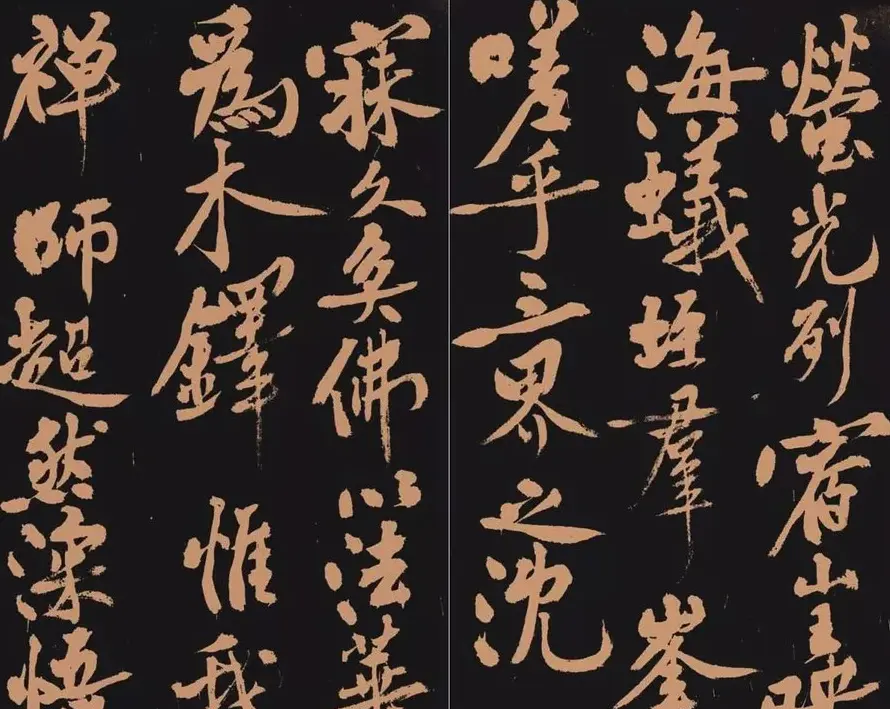 螢光列宿山王映
海蟻垤羣峯
嗟乎三界之沈
寐久矣佛以法華
爲木鐸惟我
禅師超然深悟